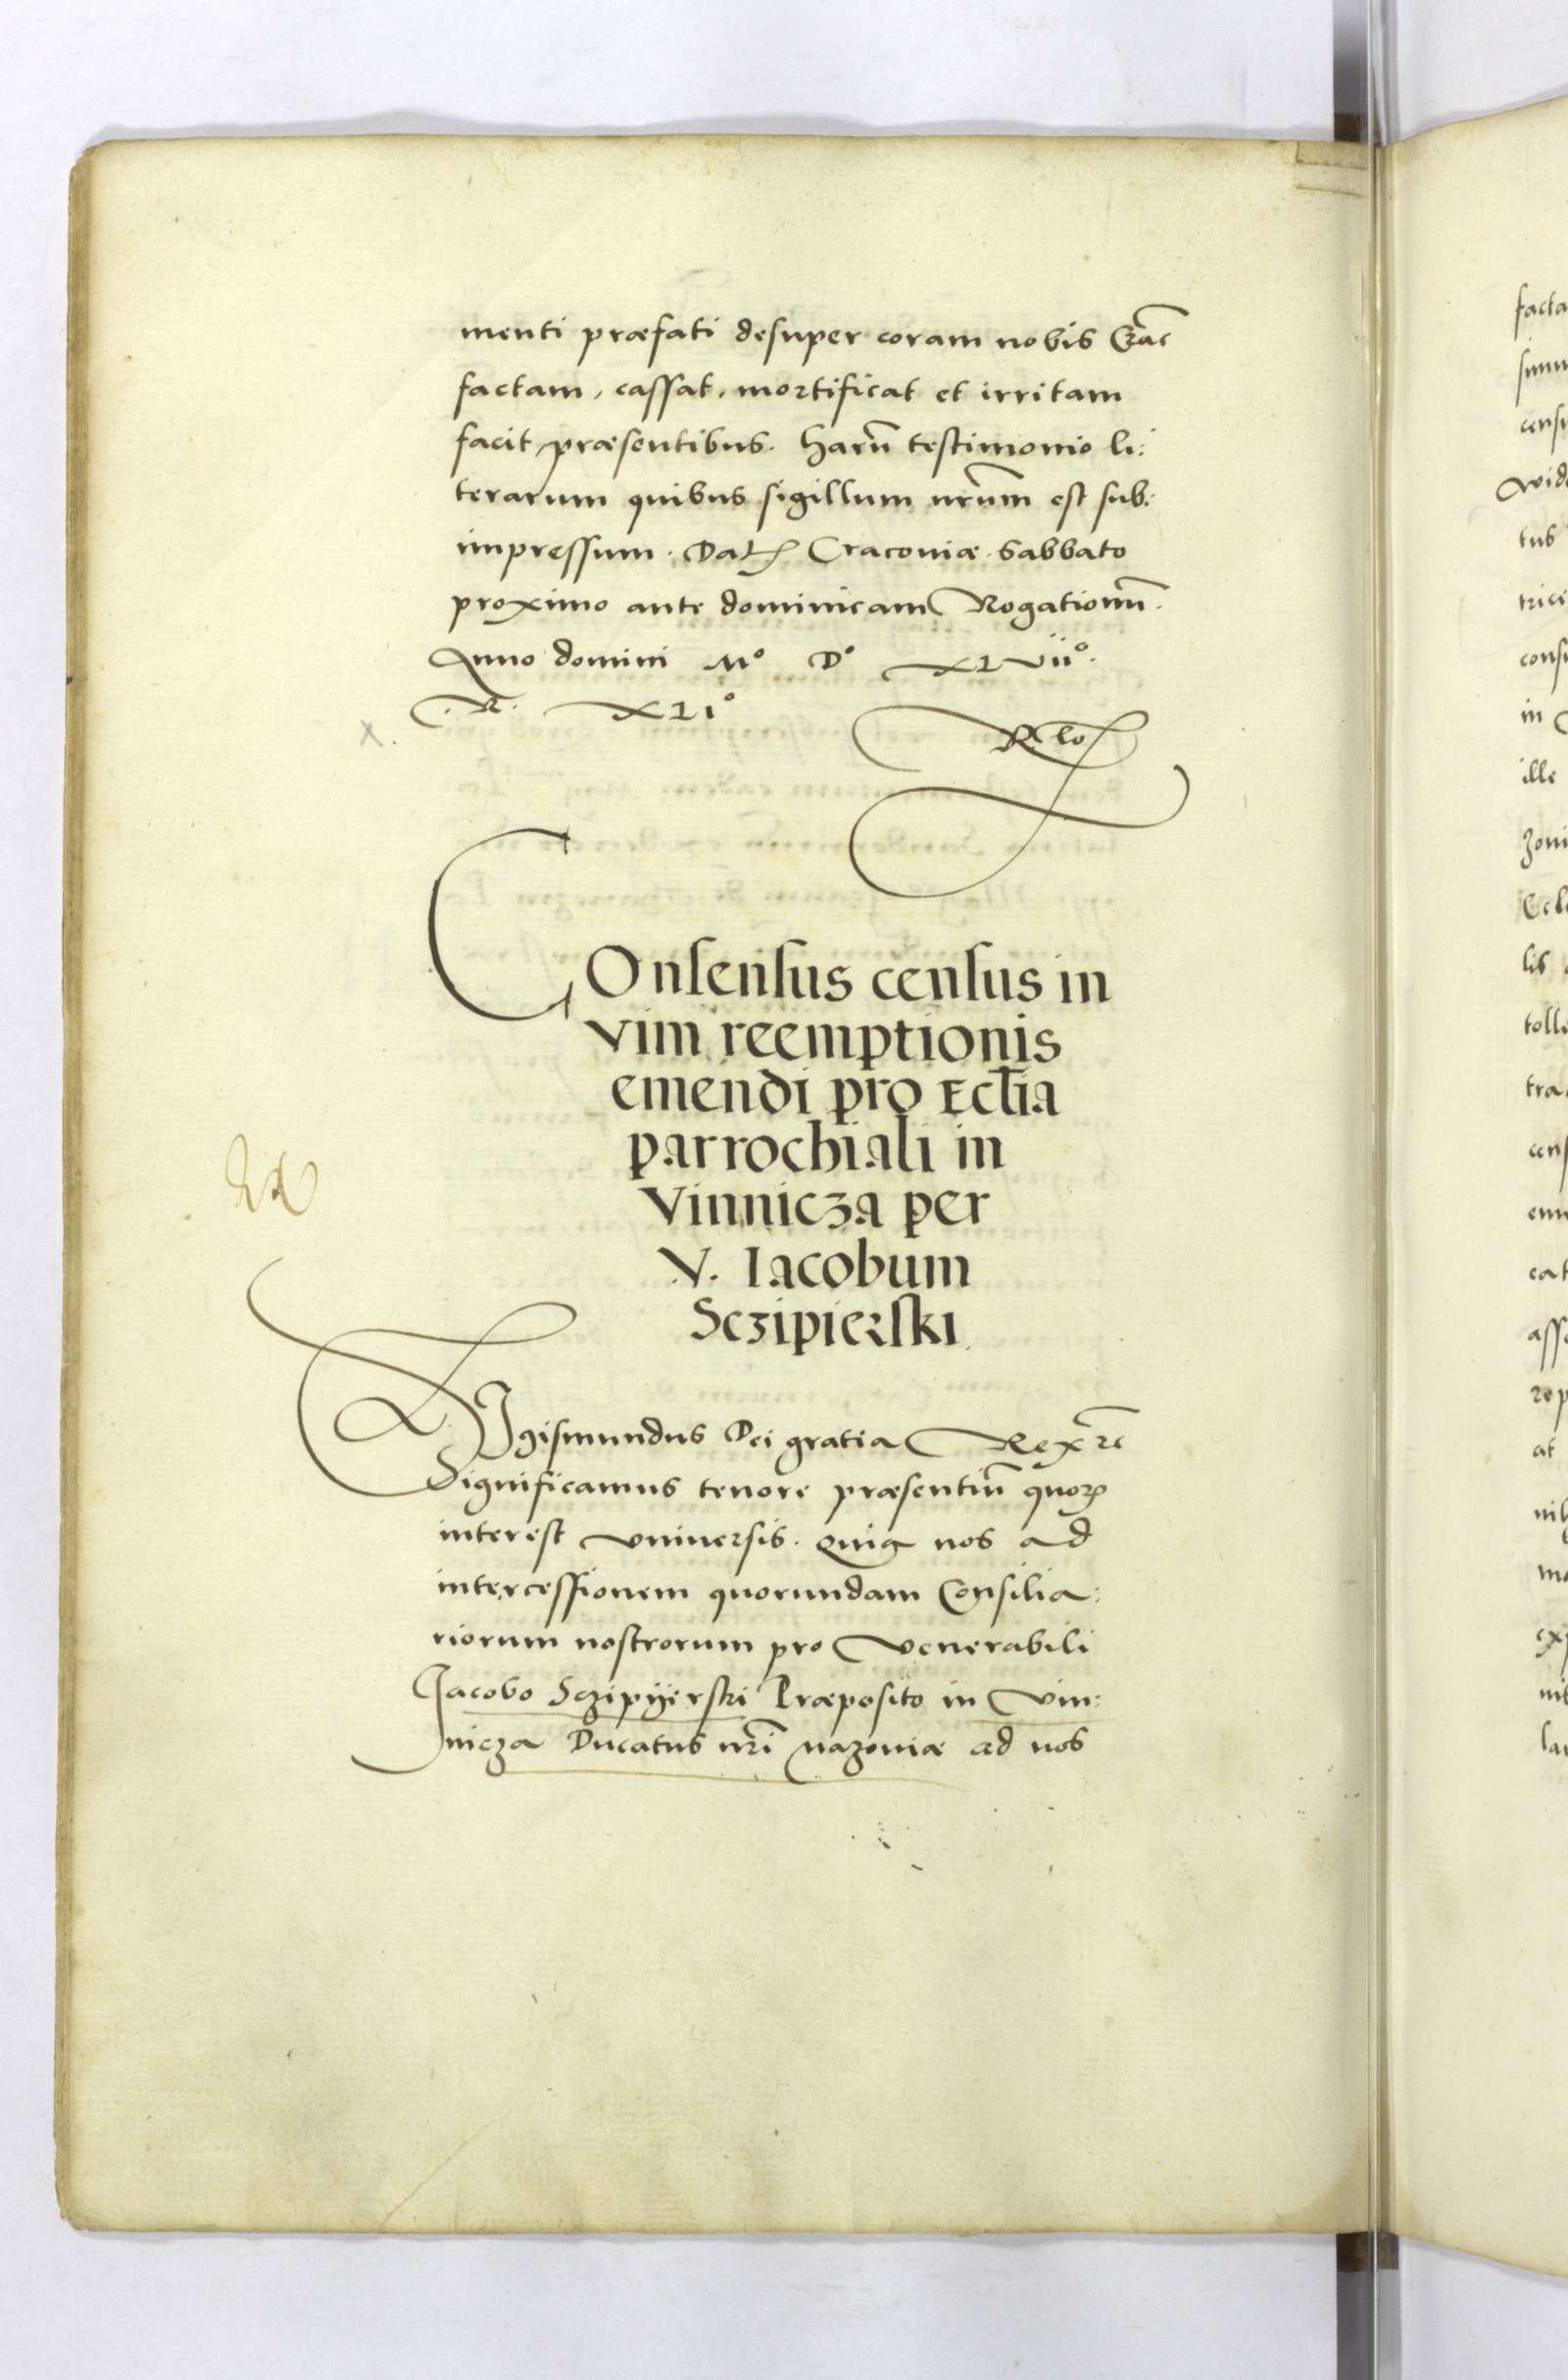 menti præfati desuper coram nobis
factam, cassat, mortificat et irritam
facit præsentibus. Harū testimonio li:
terarum quibus sigillum nr̄um est sub:
impressum. Dat Craconiæ Sabbato
proximo ante dominicam Rogationū.
Anno domini M° D° XLVII°.
.R. XLI°
Consensus census in
vim reemptionis
emendi pro Eccl̄ia
parrochiali in
Vinnicza per
V. Iacobum
Sczipierski
Sigismundus Dei gratia Rex
Significamus tenore præsentiū quoꝝ
interest vniversis. Quia nos ad
intercessionem quorundam Consilia:
riorum nostrorum pro Venerabili
Jacobo Sczipijerski Præposito in Vin:
nicza Ducatus nr̄i Mazoviæ ad nos